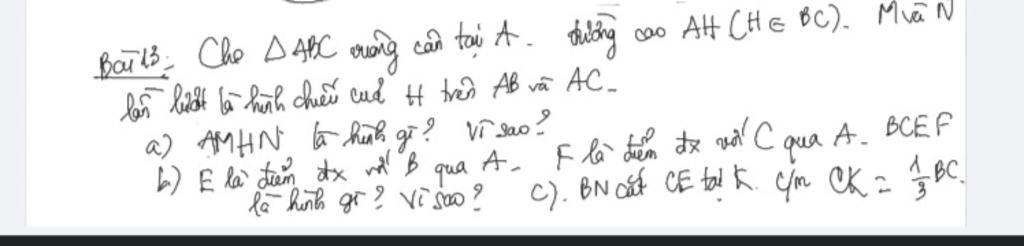 Bài 13: Cho △ABC vuông cân tại A. đường cao AH (H ∈ BC). M và N
lần lượt là hình chiếu của H trên AB và AC.
a) AMHN là hình gì? Vì sao?
b) E là điểm đx với B qua A. F là điểm đx với C qua A. BCEF
là hình gì? Vì sao? c). BN cắt CE tại K. c/m CK = 1/3 BC.